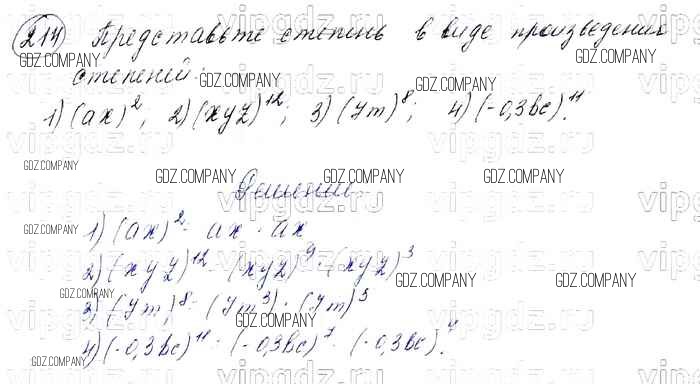 214 Представьте степень в виде произведения
степеней:
1) (ax)²; 2) (xyz)¹²; 3) (7m)⁸; 4) (-0,3bc)¹¹.
Решение
1) (ax)² = ax · ax
2) (xyz)¹² = (xyz)⁹ · (xyz)³
3) (7m)⁸ = (7m³) · (7m)⁵
4) (-0,3bc)¹¹ = (-0,3bc)⁷ · (-0,3bc)⁴.
GDZ.COMPANY
vipgdz.ru